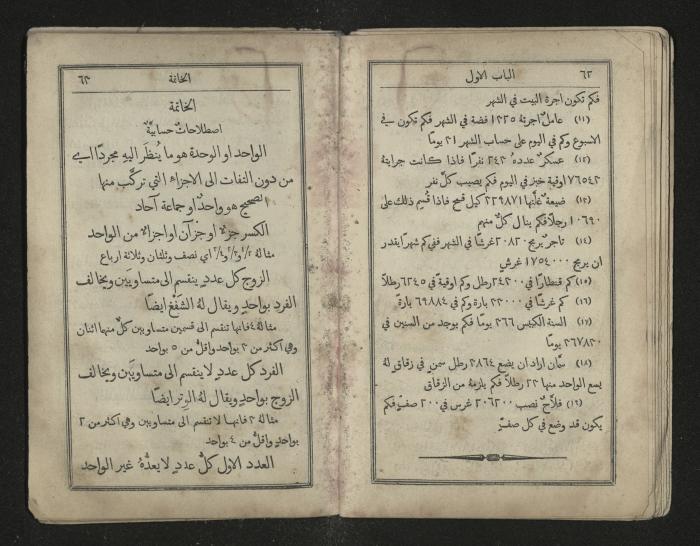 ٦٢ الباب الاول
فكم تكون اجرة البيت في الشهر
(١١) عامل اجرته ١٢٢٥ فضة في الشهر فكم تكون في
الاسبوع وكم في اليوم على حساب الشهر ٣١ يومًا
(١٢) عسكر عدده ٢٤٢ نفرًا فاذا كانت جرايته
٧٦٥٤٢ اوقية خبز في اليوم فكم يصيب كل نفر
(١٣) ضيعة غلتها ٢٢٩٨٧١ كيل قمح فاذا قُسِم ذلك على
١٠٦٩٠ رجلًا فكم ينال كلٌّ منهم
(١٤) تاجر يربح ٢٠٨٢٠ غرشًا في الشهر ففي كم شهرًا يقدر
ان يربح ١٧٥٤٠٠٠ غرش
(١٥) كم قنطارًا في ٢٤٢٠٠ رطل وكم اوقية في ٦٢٤٥ رطلًا
(١٦) كم غرشًا في ٢٢٠٠٠ بارة وكم في ٦٩٨٨٤ بارة
(١٧) السنة الكبيس ٣٦٦ يومًا فكم يوجد من السنين في
٢٦٧٨٢٠ يومًا
(١٨) سمّان اراد ان يضع ٢٨٦٤ رطل سمن في زقاق له
يسع الواحد منها ٢٢ رطلًا فكم يلزمه من الزقاق
(١٩) فلاحٌ نصب ٢٠٦٢٠٠ غرس في ٢٠٠ صفٍّ فكم
يكون قد وضع في كل صفّ
الخاتمة ٦٣
الخاتمة
اصطلاحاتٌ حسابيةٌ
الواحد او الوحدة هو ما يُنظَر اليهِ مجردًا اي
من دون التفات الى الاجزاء التي تركَّب منها
الصحيح هو واحدٌ او جماعة آحاد
الكسر جزءٌ او جزآن او اجزاءٌ من الواحد
مثاله ١/٢ و٢/٣ و٣/٤ اي نصف وثلثان وثلاثة ارباع
الزوج كل عددٍ ينقسم الى متساويَين ويخالف
الفرد بواحدٍ ويقال لهُ الشَفْع ايضًا
مثاله ٤ فانها تنقسم الى قسمين متساويين كلٌّ منهما اثنان
وهي اكثر من ٣ بواحد واقلُّ من ٥ بواحد
الفرد كل عددٍ لا ينقسم الى متساويَين ويخالف
الزوج بواحدٍ ويقال لهُ الوتر ايضًا
مثاله ٣ فانها لا تنقسم الى متساويين وهي اكثر من ٢
بواحدٍ واقلُّ من ٤ بواحد
العدد الاول كلُّ عددٍ لا يعدُّهُ غير الواحد